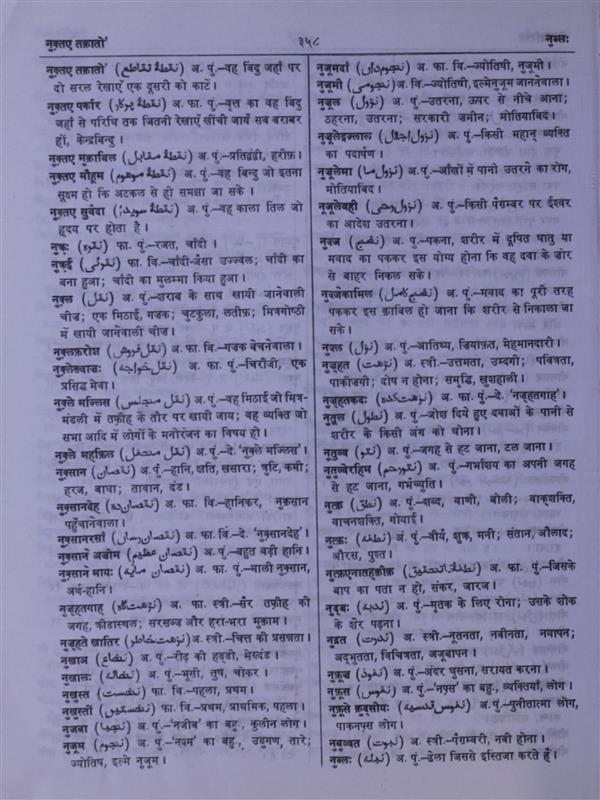 नुक़्तए तक़ातो' ३५८ नुब्लः
नुक़्तए तक़ातो' (نقطۂ تقاطع) अ. पुं.–वह बिंदु जहां पर
दो सरल रेखाएँ एक दूसरी को काटें।
नुक़्तए पर्कार (نقطۂ پرکار) अ. फा. पुं.–वृत्त का वह बिंदु
जहाँ से परिधि तक जितनी रेखाएँ खींची जायँ सब बराबर
हों, केन्द्रबिन्दु।
नुक़्तए मुक़ाबिल (نقطۂ مقابل) अ. पुं.–प्रतिद्वंद्वी, हरीफ़।
नुक़्तए मौहूम (نقطۂ موهوم) अ. पुं.–वह बिन्दु जो इतना
सूक्ष्म हो कि अटकल से ही समझा जा सके।
नुक़्तए सुवैदा (نقطۂ سویدا) अ. पुं.–वह काला तिल जो
हृदय पर होता है।
नुक़्रः (نقره) फा. पुं.–रजत, चाँदी।
नुक़्रई (نقرئی) फा. वि.–चाँदी-जैसा उज्ज्वल; चाँदी का
बना हुआ; चाँदी का मुलम्मा किया हुआ।
नुक़्ल (نقل) अ. पुं.–शराब के साथ खायी जानेवाली
चीज़; एक मिठाई, गज़क; चुटकुला, लतीफ़; मित्रगोष्ठी
में खायी जानेवाली चीज़।
नुक़्लफ़रोश (نقل فروش) अ. फा. वि.–गजक बेचनेवाला।
नुक़्लेख्वाजः (نقل خواجه) अ. फा. पुं.–चिरौंजी, एक
प्रसिद्ध मेवा।
नुक़्ले मज्लिस (نقل مجلس) अ. पुं.–वह मिठाई जो मित्र-
मंडली में तफ़्रीह के तौर पर खायी जाय; वह व्यक्ति जो
सभा आदि में लोगों के मनोरंजन का विषय हो।
नुक़्ले महफ़िल (نقل محفل) अ. पुं.–दे. 'नुक़्ले मज्लिस'।
नुक़्सान (نقصان) अ. पुं.–हानि, क्षति, खसारा; त्रुटि, कमी;
हरज, बाधा; तावान, दंड।
नुक़्सानदेह (نقصان ده) अ. फा. वि.–हानिकर, नुक़सान
पहुँचानेवाला।
नुक़्सानरसाँ (نقصان رساں) अ. फा. वि.–दे. 'नुक़्सानदेह'।
नुक़्साने अज़ीम (نقصان عظیم) अ. पुं.–बहुत बड़ी हानि।
नुक़्साने मायः (نقصان مایه) अ. फा. पुं.–माली नुक़्सान,
अर्थ-हानि।
नुज़्हतगाह (نزهت گاه) अ. फा. स्त्री.–सैर तफ़्रीह की
जगह, क्रीडास्थल; सरसब्ज़ और हरा-भरा मुक़ाम।
नुज़्हते खातिर (نزهت خاطر) अ. स्त्री.–चित्त की प्रसन्नता।
नुखाअ (نخاع) अ. पुं.–रीढ़ की हड्डी, मेरुदंड।
नुखालः (نخاله) अ. पुं.–भूसी, तुष, चोकर।
नुखुस्त (نخست) फा. वि.–पहला, प्रथम।
नुखुस्तीं (نخستیں) फा. वि.–प्रथम, प्राथमिक, पहला।
नुजबा (نجبا) अ. पुं.–'नजीब' का बहु., कुलीन लोग।
नुजूम (نجوم) अ. पुं.–'नज्म' का बहु., उडुगण, तारे;
ज्योतिष, इल्मे नुजूम।
नुजूमदाँ (نجوم داں) अ. फा. वि.–ज्योतिषी, नुजूमी।
नुजूमी (نجومی) अ. वि.–ज्योतिषी, इल्मेनुजूम जाननेवाला।
नुज़ूल (نزول) अ. पुं.–उतरना, ऊपर से नीचे आना;
ठहरना, उतरना; सरकारी ज़मीन; मोतियाबिंद।
नुज़ूलेइज्लाल (نزول اجلال) अ. पुं.–किसी महान् व्यक्ति
का पदार्पण।
नुज़ूलेमा (نزول ما) अ. पुं.–आँखों में पानी उतरने का रोग,
मोतियाबिंद।
नुज़ूलेवही (نزول وحی) अ. पुं.–किसी पैगम्बर पर ईश्वर
का आदेश उतरना।
नुज़्ज (نضج) अ. पुं.–पकना, शरीर में दूषित धातु या
मवाद का पककर इस योग्य होना कि वह दवा के ज़ोर
से बाहर निकल सके।
नुज़्जेकामिल (نضج کامل) अ. पुं.–मवाद का पूरी तरह
पककर इस क़ाबिल हो जाना कि शरीर से निकाला जा
सके।
नुज़्ल (نزل) अ. पुं.–आतिथ्य, ज़ियाफ़त, मेहमानदारी।
नुज़्हत (نزهت) अ. स्त्री.–उत्तमता, उम्दगी; पवित्रता,
पाकीज़गी; दोष न होना; समृद्धि, खुशहाली।
नुज़्हतकदः (نزهت کده) अ. फा. पुं.–दे. 'नुज़्हतगाह'।
नुतूल (نطول) अ. पुं.–जोश दिये हुए दवाओं के पानी से
शरीर के किसी अंग को धोना।
नुतुव्व (نتو) अ. पुं.–जगह से हट जाना, टल जाना।
नुतुव्वेरहिम (نتورحم) अ. पुं.–गर्भाशय का अपनी जगह
से हट जाना, गर्भच्युति।
नुत्क़ (نطق) अ. पुं.–शब्द, वाणी, बोली; वाक्‌शक्ति,
वाचनशक्ति, गोयाई।
नुत्फ़ः (نطفه) अ. पुं.–वीर्य, शुक्र, मनी; संतान, औलाद;
औरस, पुश्त।
नुत्फ़एनातहक़ीक़ (نطفۂ ناتحقیق) अ. फा. पुं.–जिसके
बाप का पता न हो, संकर, जारज।
नुद्बः (ندبه) अ. पुं.–मृतक के लिए रोना; उसके शोक
के शेर पढ़ना।
नुद्रत (ندرت) अ. स्त्री.–नूतनता, नवीनता, नयापन;
अद्‌भुतता, विचित्रता, अजूबापन।
नुफ़ूज़ (نفوذ) अ. पुं.–अंदर घुसना, सरायत करना।
नुफ़ूस (نفوس) अ. पुं.–'नफ़्स' का बहु., व्यक्तियाँ, लोग।
नुफ़ूसे क़ुद्सीयः (نفوس قدسیه) अ. पुं.–पुनीतात्मा लोग,
पाकनफ़्स लोग।
नुबुव्वत (نبوت) अ. स्त्री.–पैगम्बरी, नबी होना।
नुब्लः (نبله) अ. पुं.–ढेला जिससे इस्तिंजा करते हैं।